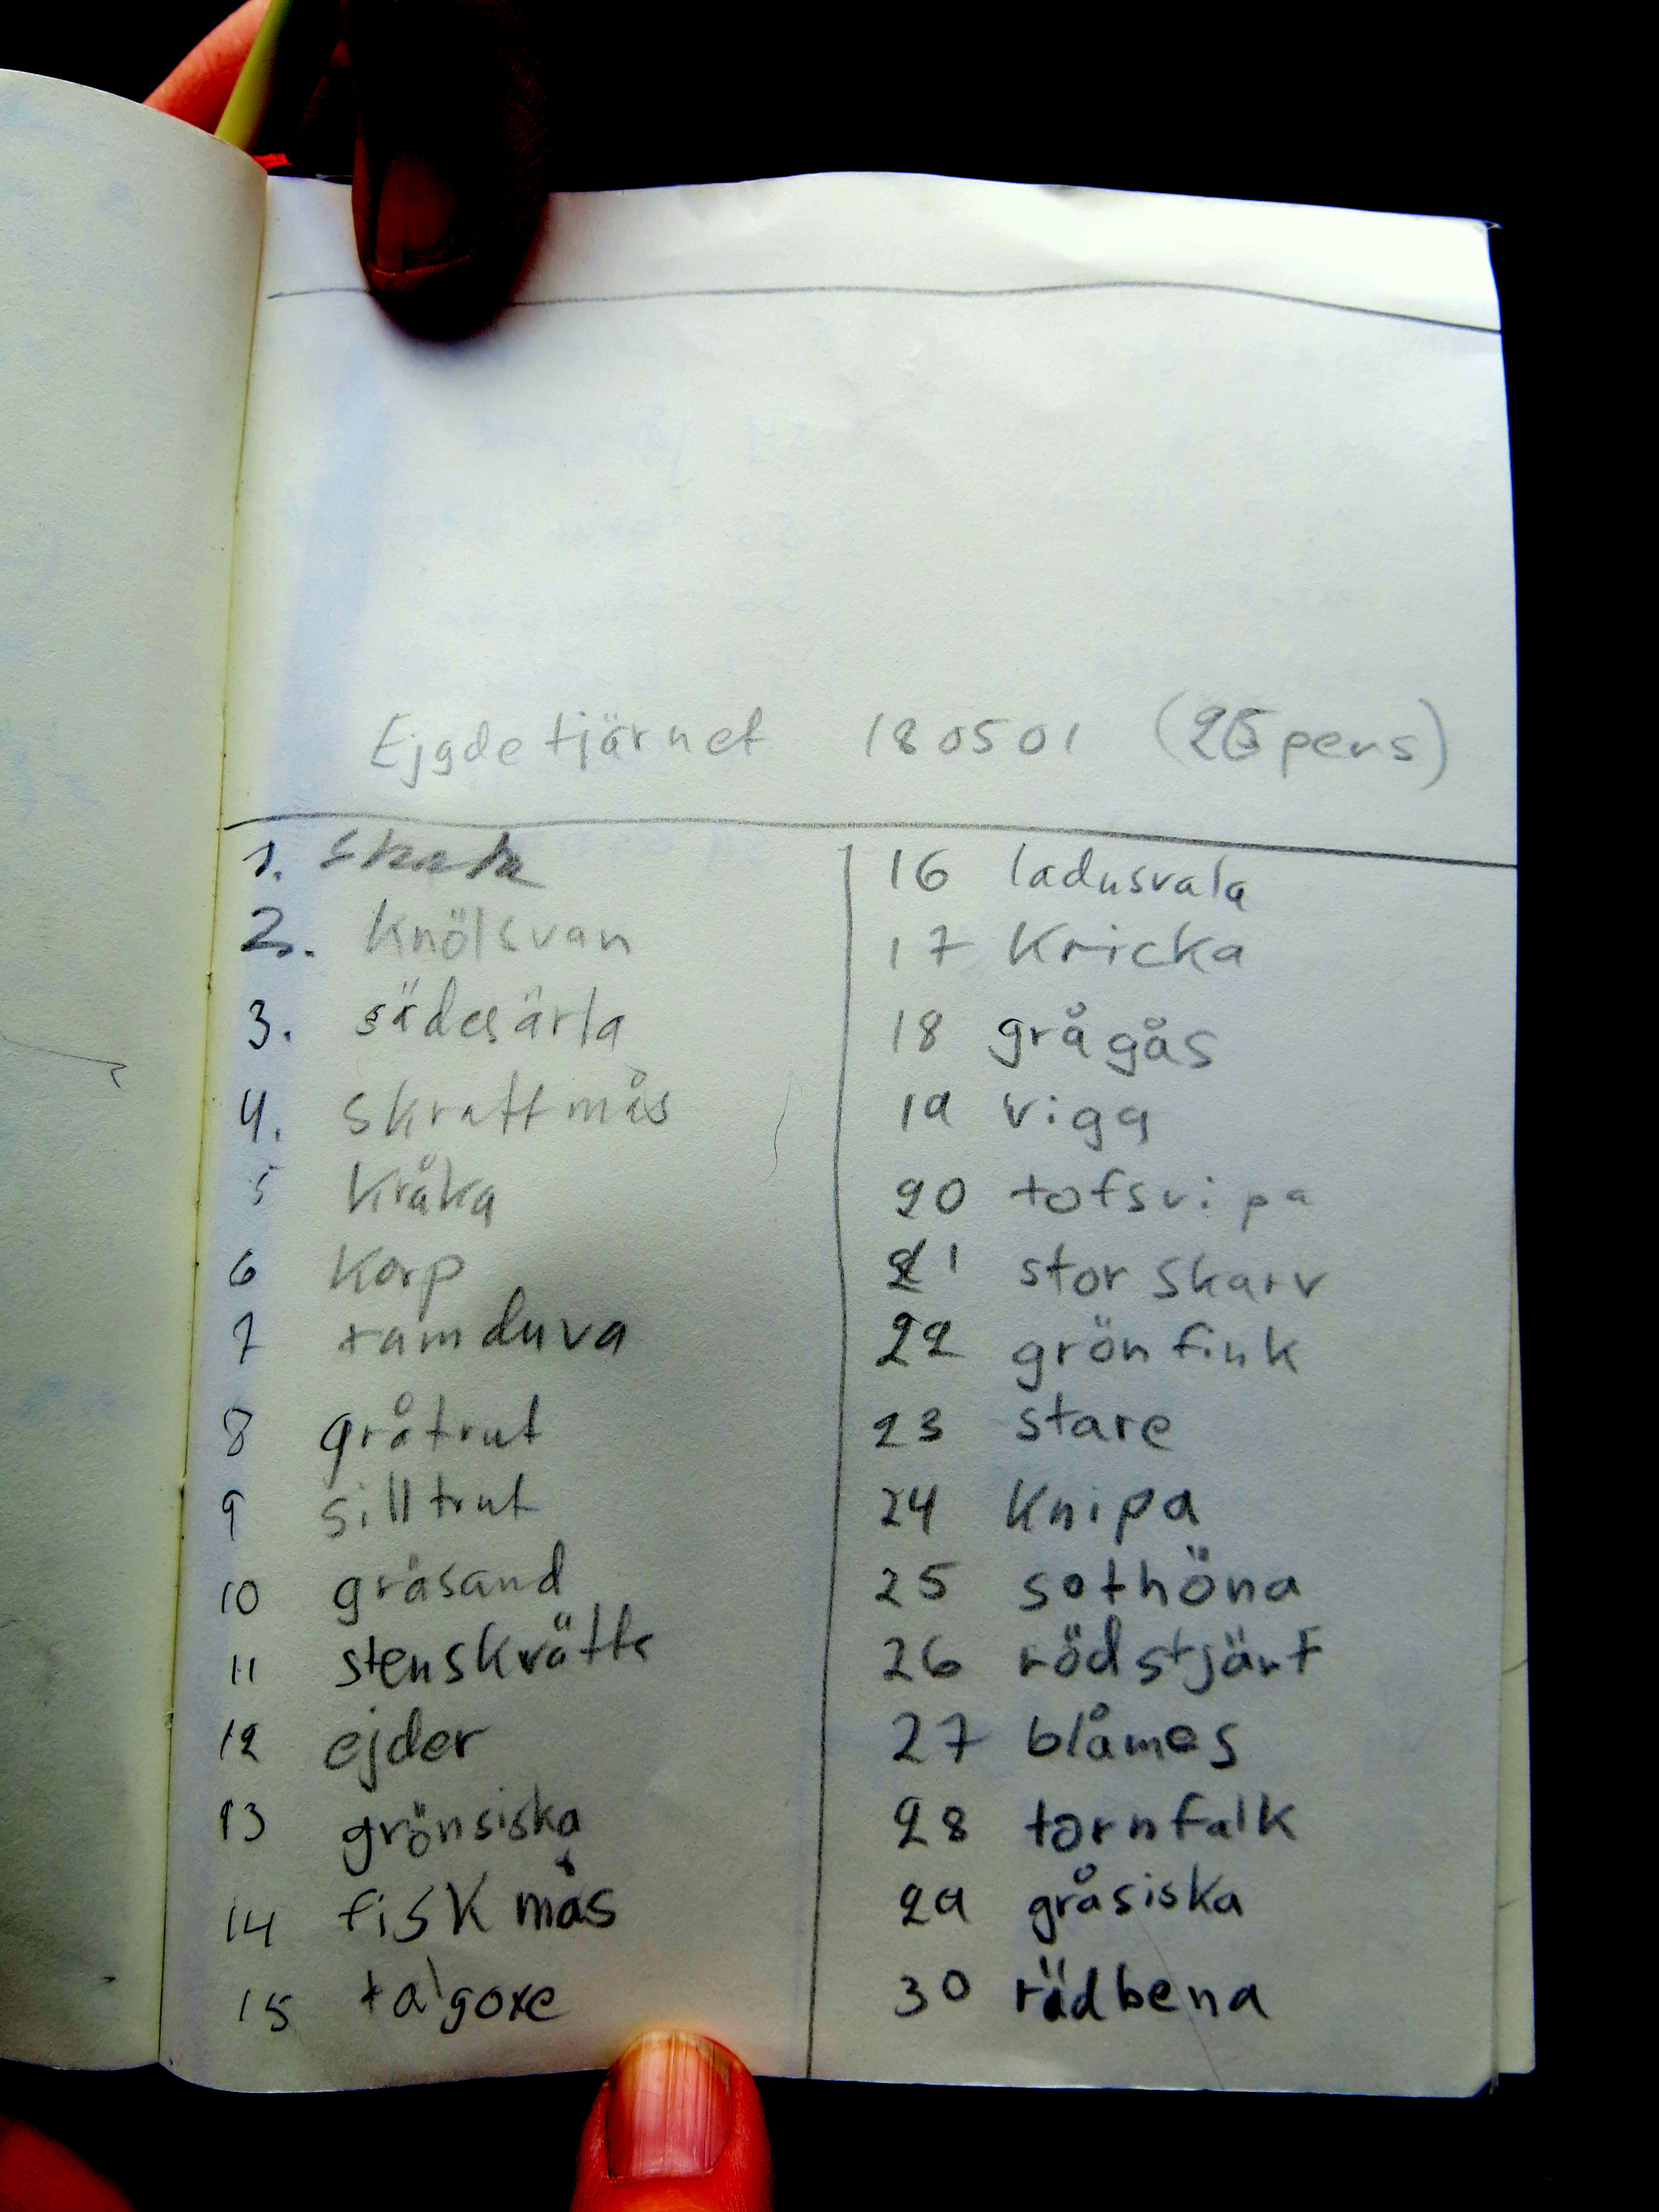 Ejgdetjärnet 180501 (25 pers)
1. skata
2. Knölsvan
3. sädesärla
4. skrattmås
5 Kråka
6 Korp
7 tamduva
8 gråtrut
9 silltrut
10 gräsand
11 stenskvätta
12 ejder
13 grönsiska
14 fiskmås
15 talgoxe
16 ladusvala
17 Kricka
18 grågås
19 vigg
20 tofsvipa
21 storskarv
22 grönfink
23 stare
24 Knipa
25 sothöna
26 rödstjärt
27 blåmes
28 tornfalk
29 gråsiska
30 rödbena